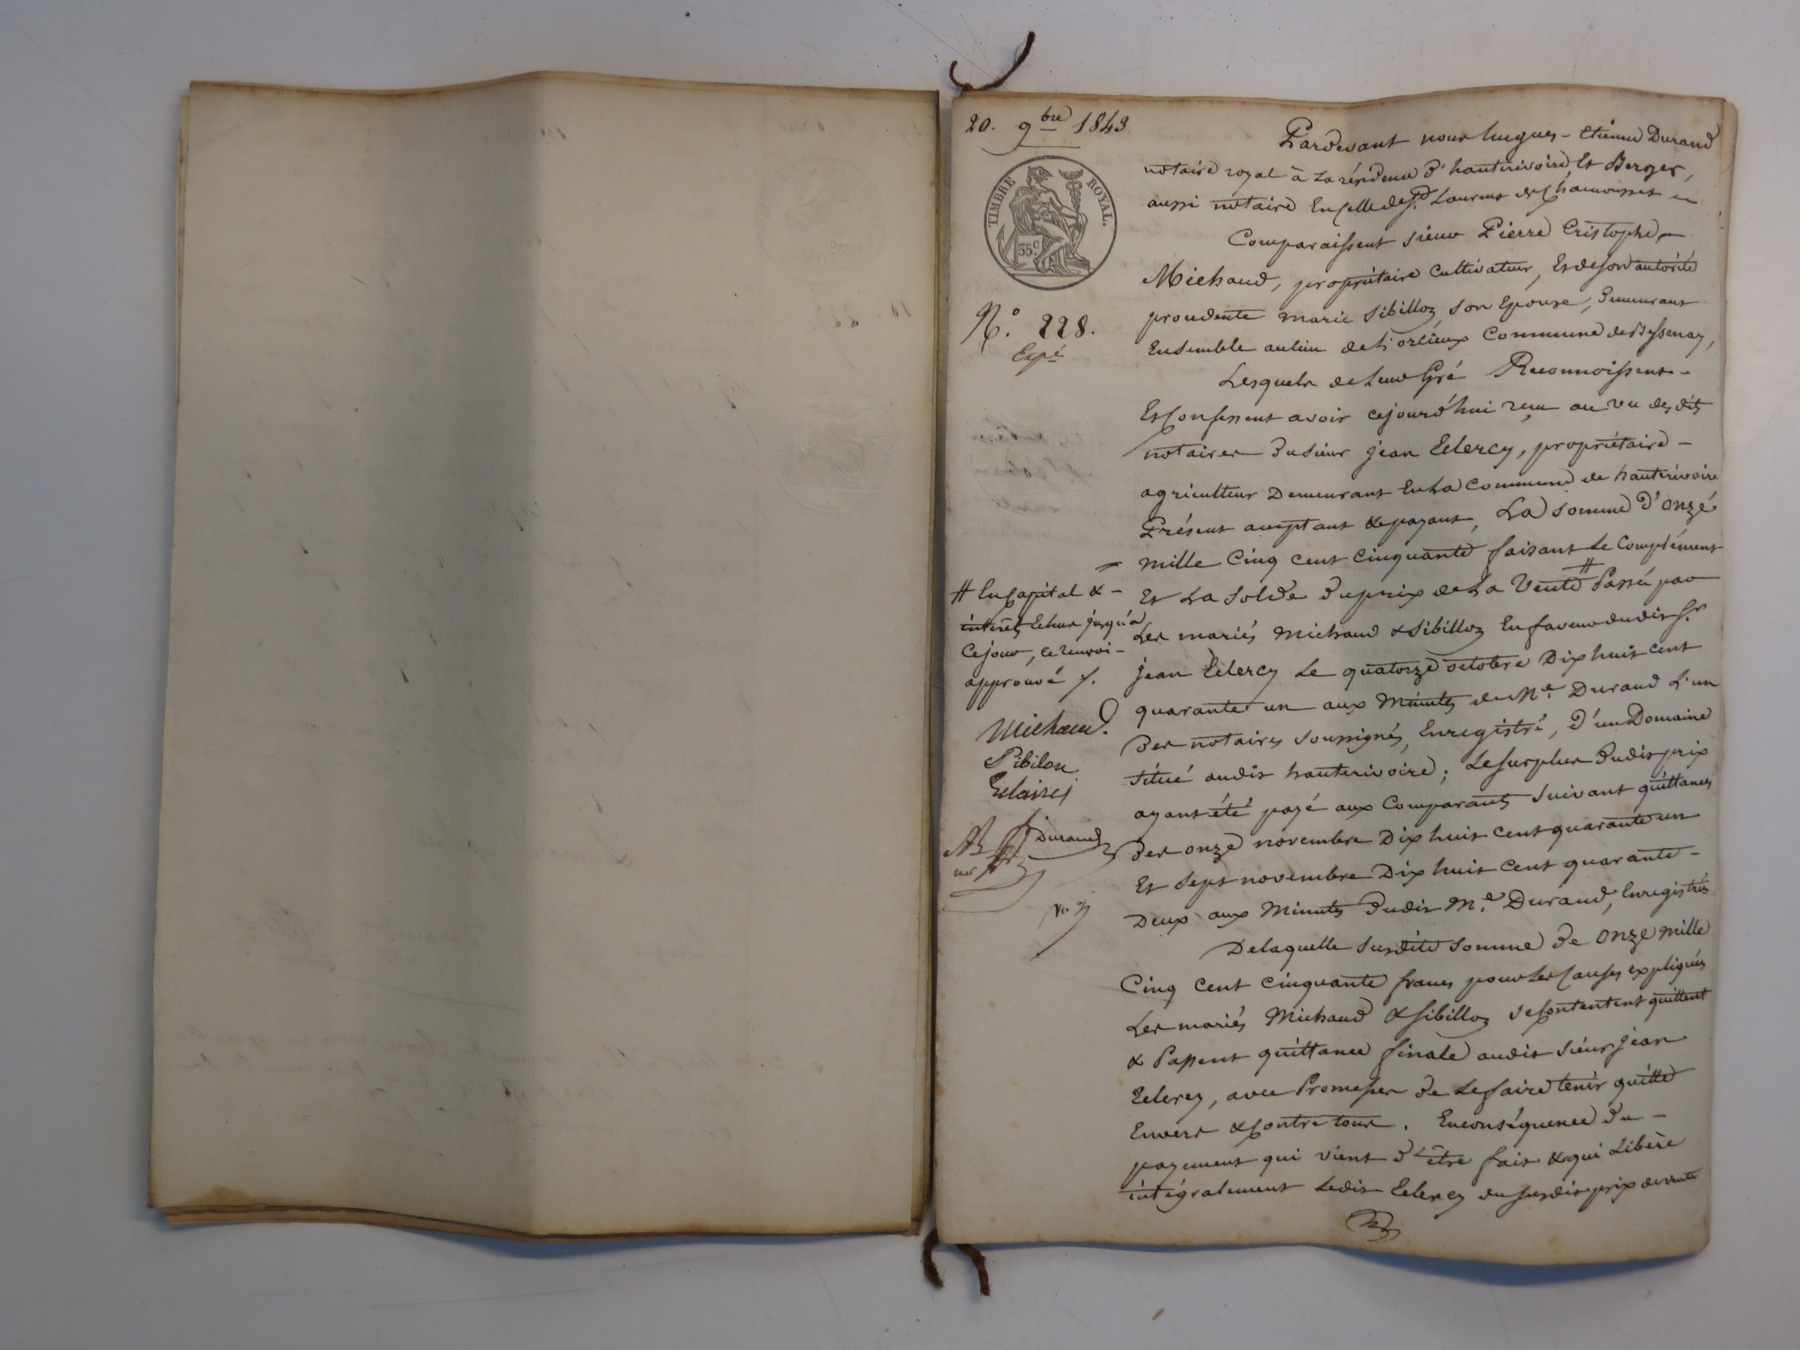 20. 9bre 1843
TIMBRE ROYAL.
35 c
N.o 228.
Expé
Pardevant nous hugues-Etienne Durand
notaire royal à la résidence d'hauterivoire, Et Berger,
aussi notaire En celle de St. Laurent de Chamousset
Comparaissent sieur Pierre Cristophe
Michaud, propriétaire Cultivateur, Et de son autorité
procedente marie Sibilloz son Epouse, demeurant
Ensemble au lieu de Commune de Bessenay,
Lesquels de leur Gré Reconnoissent
Et Confessent avoir cejourd'hui reçu au vu des dits
notaires du sieur jean Eclercy, propriétaire
agriculteur Demeurant En La Commune de hauterivoire
Présent acceptant & payant, La somme d'onze
mille Cinq cent cinquante faisant Le Complément
Et La Solde du prix de La Vente # Passée par
Les mariés Michaud & Sibilloz En faveur dudit Sr.
jean Eclercy Le quatorze octobre Dix huit cent
quarante un aux Minutes de Me. Durand L'un
des notaires soussignés, Enregistré, d'un Domaine
situé audit hauterivoire; Le surplus dudit prix
ayant été payé aux Comparants suivant quittances
des onze novembre Dix huit cent quarante un
Et Sept novembre Dix huit cent quarante
Deux aux Minutes dudit Me. Durand, Enregistrés
De laquelle susdite somme de onze mille
Cinq cent cinquante francs pour les Causes expliquées
Les mariés Michaud & Sibilloz se Contentent quittent
& Passent quittance finale audit sieur jean
Eclercy, avec Promesses de Le faire tenir quitte
Envers & Contre tous. En conséquence du
payement qui vient d'être fait & qui Libère
intégralement Ledit Eclercy du susdit prix de vente
# En Capital &
intérêts Echus jusqu'à
Ce jour, ce renvoi
approuvé /.
Michaud
Sibilou
Durand